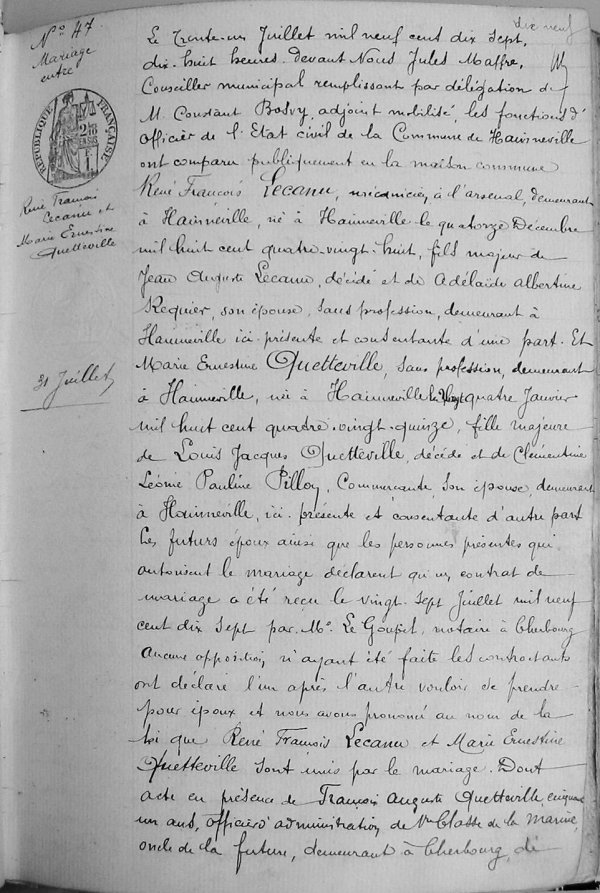 dix neuf
N° 47
Mariage
entre
RÉPUBLIQUE FRANÇAISE
René François
Lecanu et
Marie Ernestine
Quetteville
31 Juillet
Le Trente-un Juillet mil neuf cent dix sept,
dix-huit heures. devant Nous Jules Maffre,
Conseiller municipal remplissant par délégation de
M. Constant Bosvy, adjoint mobilisé, les fonctions d'
officier de l'Etat civil de la Commune de Hainneville
ont comparu publiquement en la maison commune
René François Lecanu, mécanicien à l'arsenal, demeurant
à Hainneville, né à Hainneville le quatorze Décembre
mil huit cent quatre-vingt-huit, fils majeur de
Jean Auguste Lecanu, décédé et de Adélaïde Albertine
Requier, son épouse, sans profession, demeurant à
Hainneville ici présente et consentante d'une part. Et
Marie Ernestine Quetteville, sans profession, demeurant
à Hainneville, née à Hainneville le Vingt quatre Janvier
mil huit cent quatre-vingt-quinze, fille majeure
de Louis Jacques Quetteville, décédé et de Clémentine
Léonie Pauline Pilloy, Commerçante son épouse, demeurant
à Hainneville, ici présente et consentante d'autre part
Les futurs époux ainsi que les personnes présentes qui
autorisent le mariage déclarent qu'un contrat de
mariage a été reçu le vingt-sept Juillet mil neuf
cent dix sept par Me Le Goupil, notaire à Cherbourg
Aucune opposition n'ayant été faite les contractants
ont déclaré l'un après l'autre vouloir se prendre
pour époux et nous avons prononcé au nom de la
loi que René François Lecanu et Marie Ernestine
Quetteville sont unis par le mariage. Dont
acte en présence de François Auguste Quetteville, cinquante
un ans, officier d'administration de 1re Classe de la Marine,
oncle de la future, demeurant à Cherbourg, de